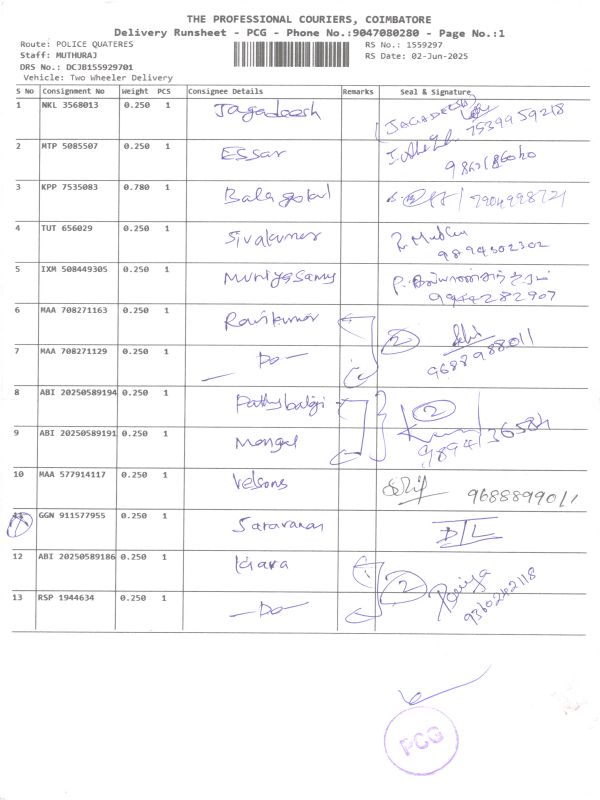 THE PROFESSIONAL COURIERS, COIMBATORE
Delivery Runsheet - PCG - Phone No.:9047080280 - Page No.:1
Route: POLICE QUATERES
RS No.: 1559297
Staff: MUTHURAJ
RS Date: 02-Jun-2025
DRS No.: DCJB155929701
Vehicle: Two Wheeler Delivery
S No Consignment No Weight PCS Consignee Details Remarks Seal & Signature
1 NKL 3568013 0.250 1 Jagadeesh JAGADEESH 7539959218
2 MTP 5085507 0.250 1 ESSar
3 KPP 7535083 0.780 1 Balagopal 7904998721
4 TUT 656029 0.250 1 Sivakumar 9894302302
5 IXM 508449305 0.250 1 Muniyasamy 9944282907
6 MAA 708271163 0.250 1 Ravikumar 2 9688988011
7 MAA 708271129 0.250 1 — Do —
8 ABI 20250589194 0.250 1 2
9 ABI 20250589191 0.250 1 Mangal 9894136584
10 MAA 577914117 0.250 1 Velsons 9688899011
11 GGN 911577955 0.250 1 Saravanan D/L
12 ABI 20250589186 0.250 1 Kiara 2 Poniya 9360242118
13 RSP 1944634 0.250 1 — Do —
PCG